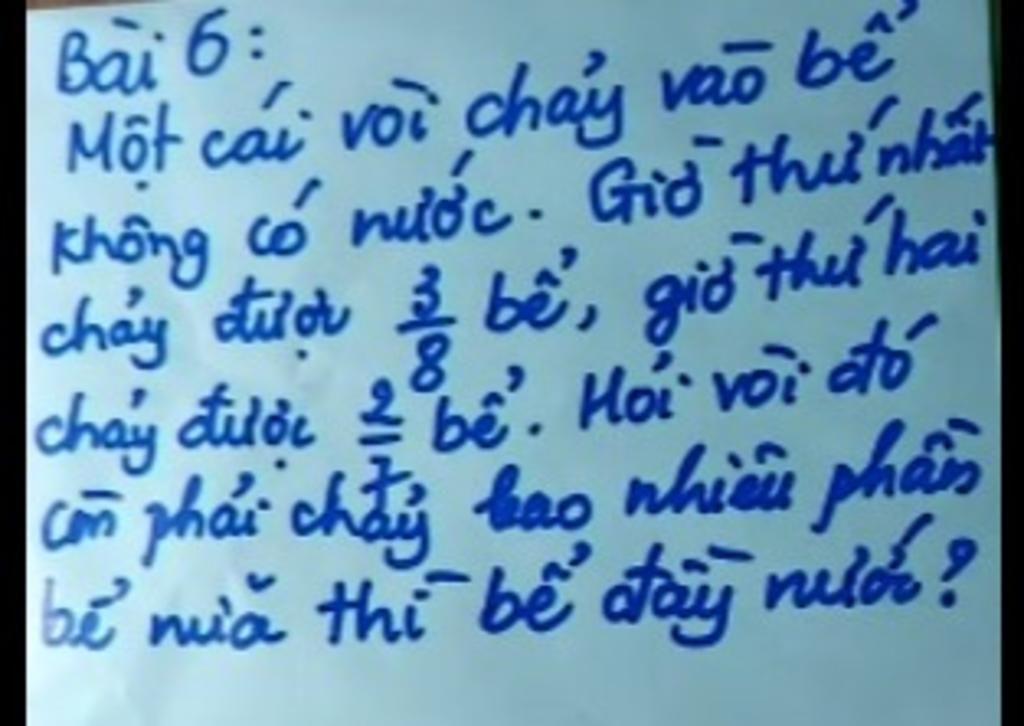 Bài 6:
Một cái vòi chảy vào bể
không có nước. Giờ thứ nhất
chảy được 3/8 bể, giờ thứ hai
chảy được 2/7 bể. Hỏi vòi đó
còn phải chảy bao nhiêu phần
bể nữa thì bể đầy nước?